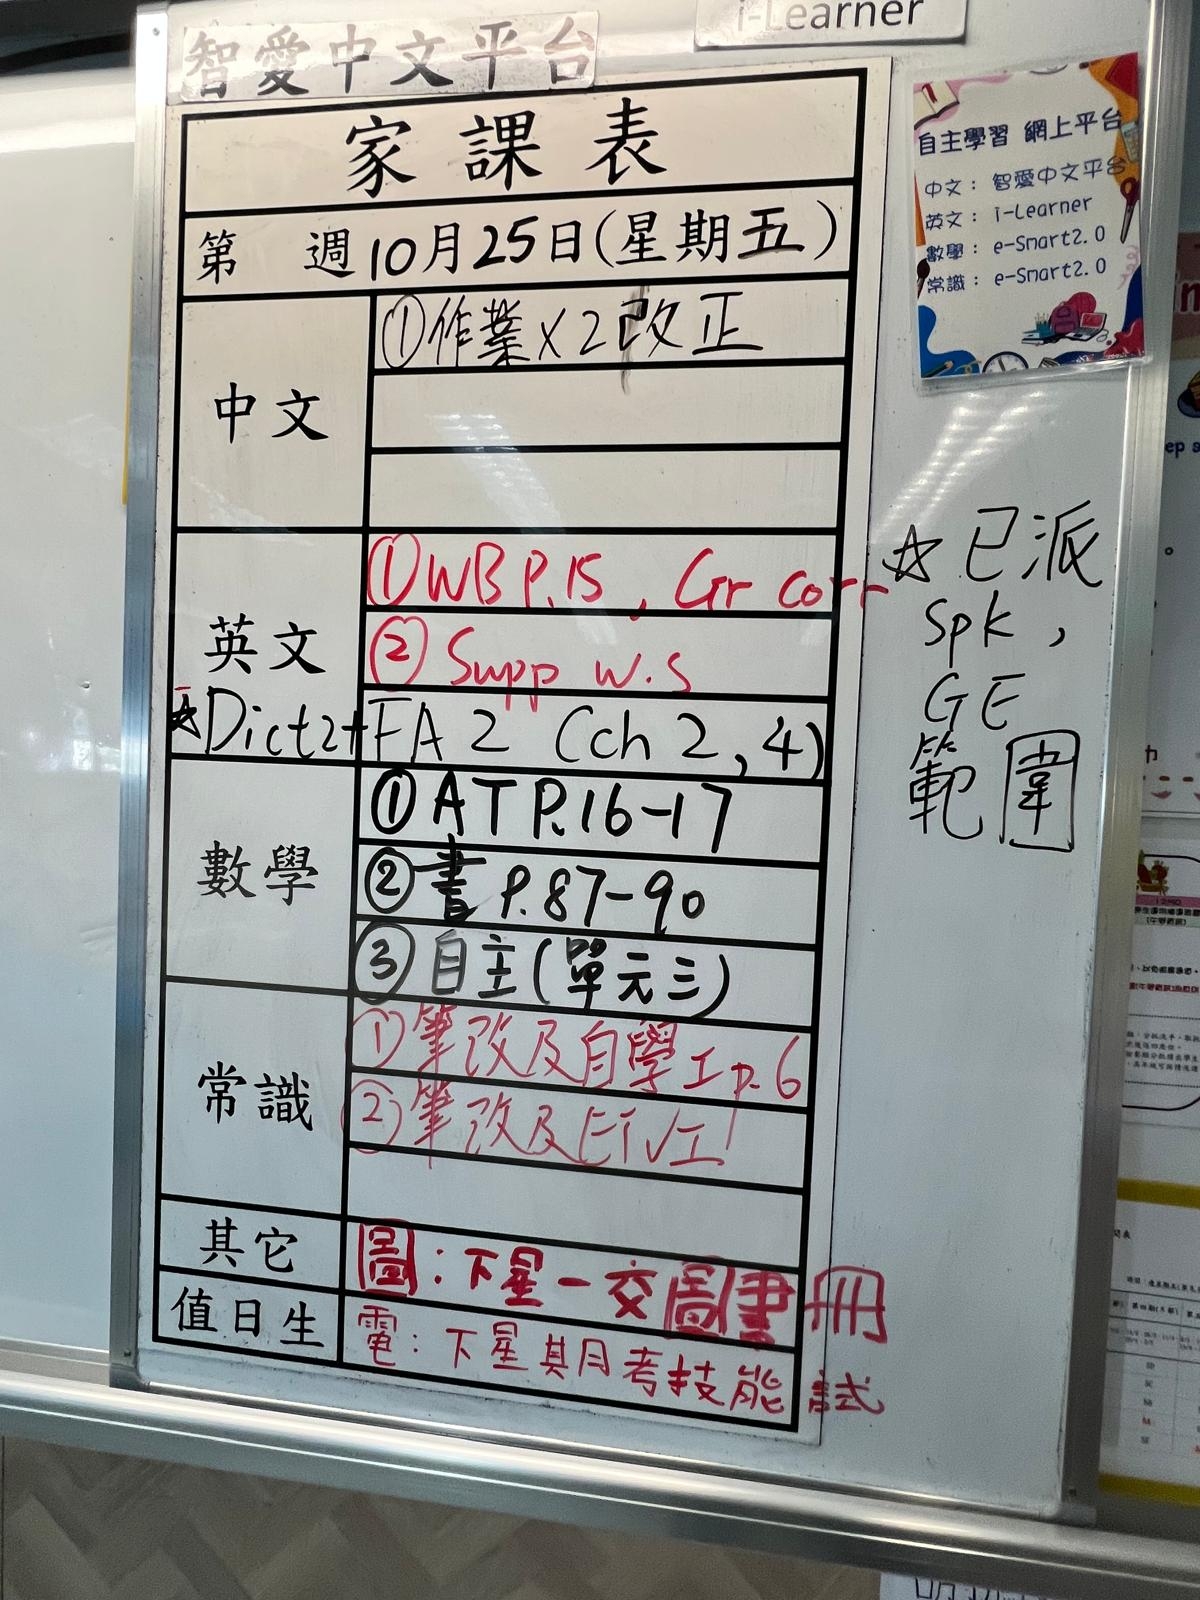 智愛中文平台
i-Learner
家課表
第 週10月25日(星期五)
中文
①作業x2改正
英文
①WB P.15, Gr corr
② Supp w.s
☆Dict2+FA 2 (ch 2, 4)
數學
①AT P.16-17
②書 P.87-90
③自主(單元三)
常識
①筆改及自學工p.6
②筆改及
其它
圖:下星一交圖書冊
值日生
電:下星期考技能試
自主學習 網上平台
中文: 智愛中文平台
英文: i-Learner
數學: e-Smart2.0
常識: e-Smart2.0
☆已派
Spk,
GE
範圍